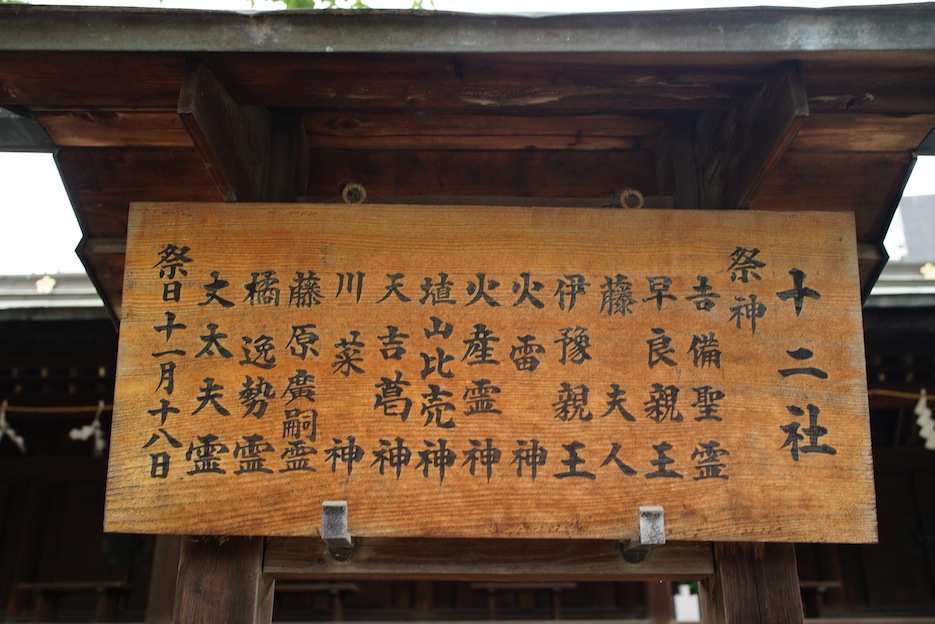 十二社
祭神
吉備聖霊
早良親王
藤夫人
伊豫親王
火雷神
火産霊神
埴山比売神
天吉葛神
川菜神
藤原廣嗣霊
橘逸勢霊
丈太夫霊
祭日十一月十八日